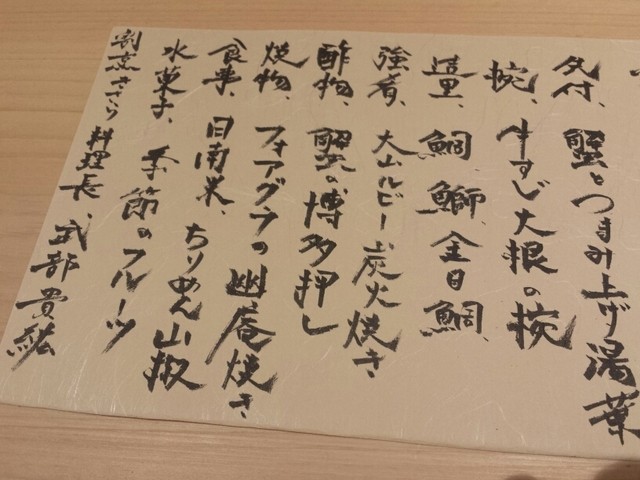 先付、蟹とつまみ上げ湯葉
椀、牛すじ大根の椀
造里、鯛、鰤、金目鯛、
強肴、大山ルビー、炭火焼き
酢物、蟹の博多押し
焼物、フォアグラの幽庵焼き
食事、日南米、ちりめん山椒
水菓子、季節のフルーツ
割烹ささら 料理長、武部貴紘